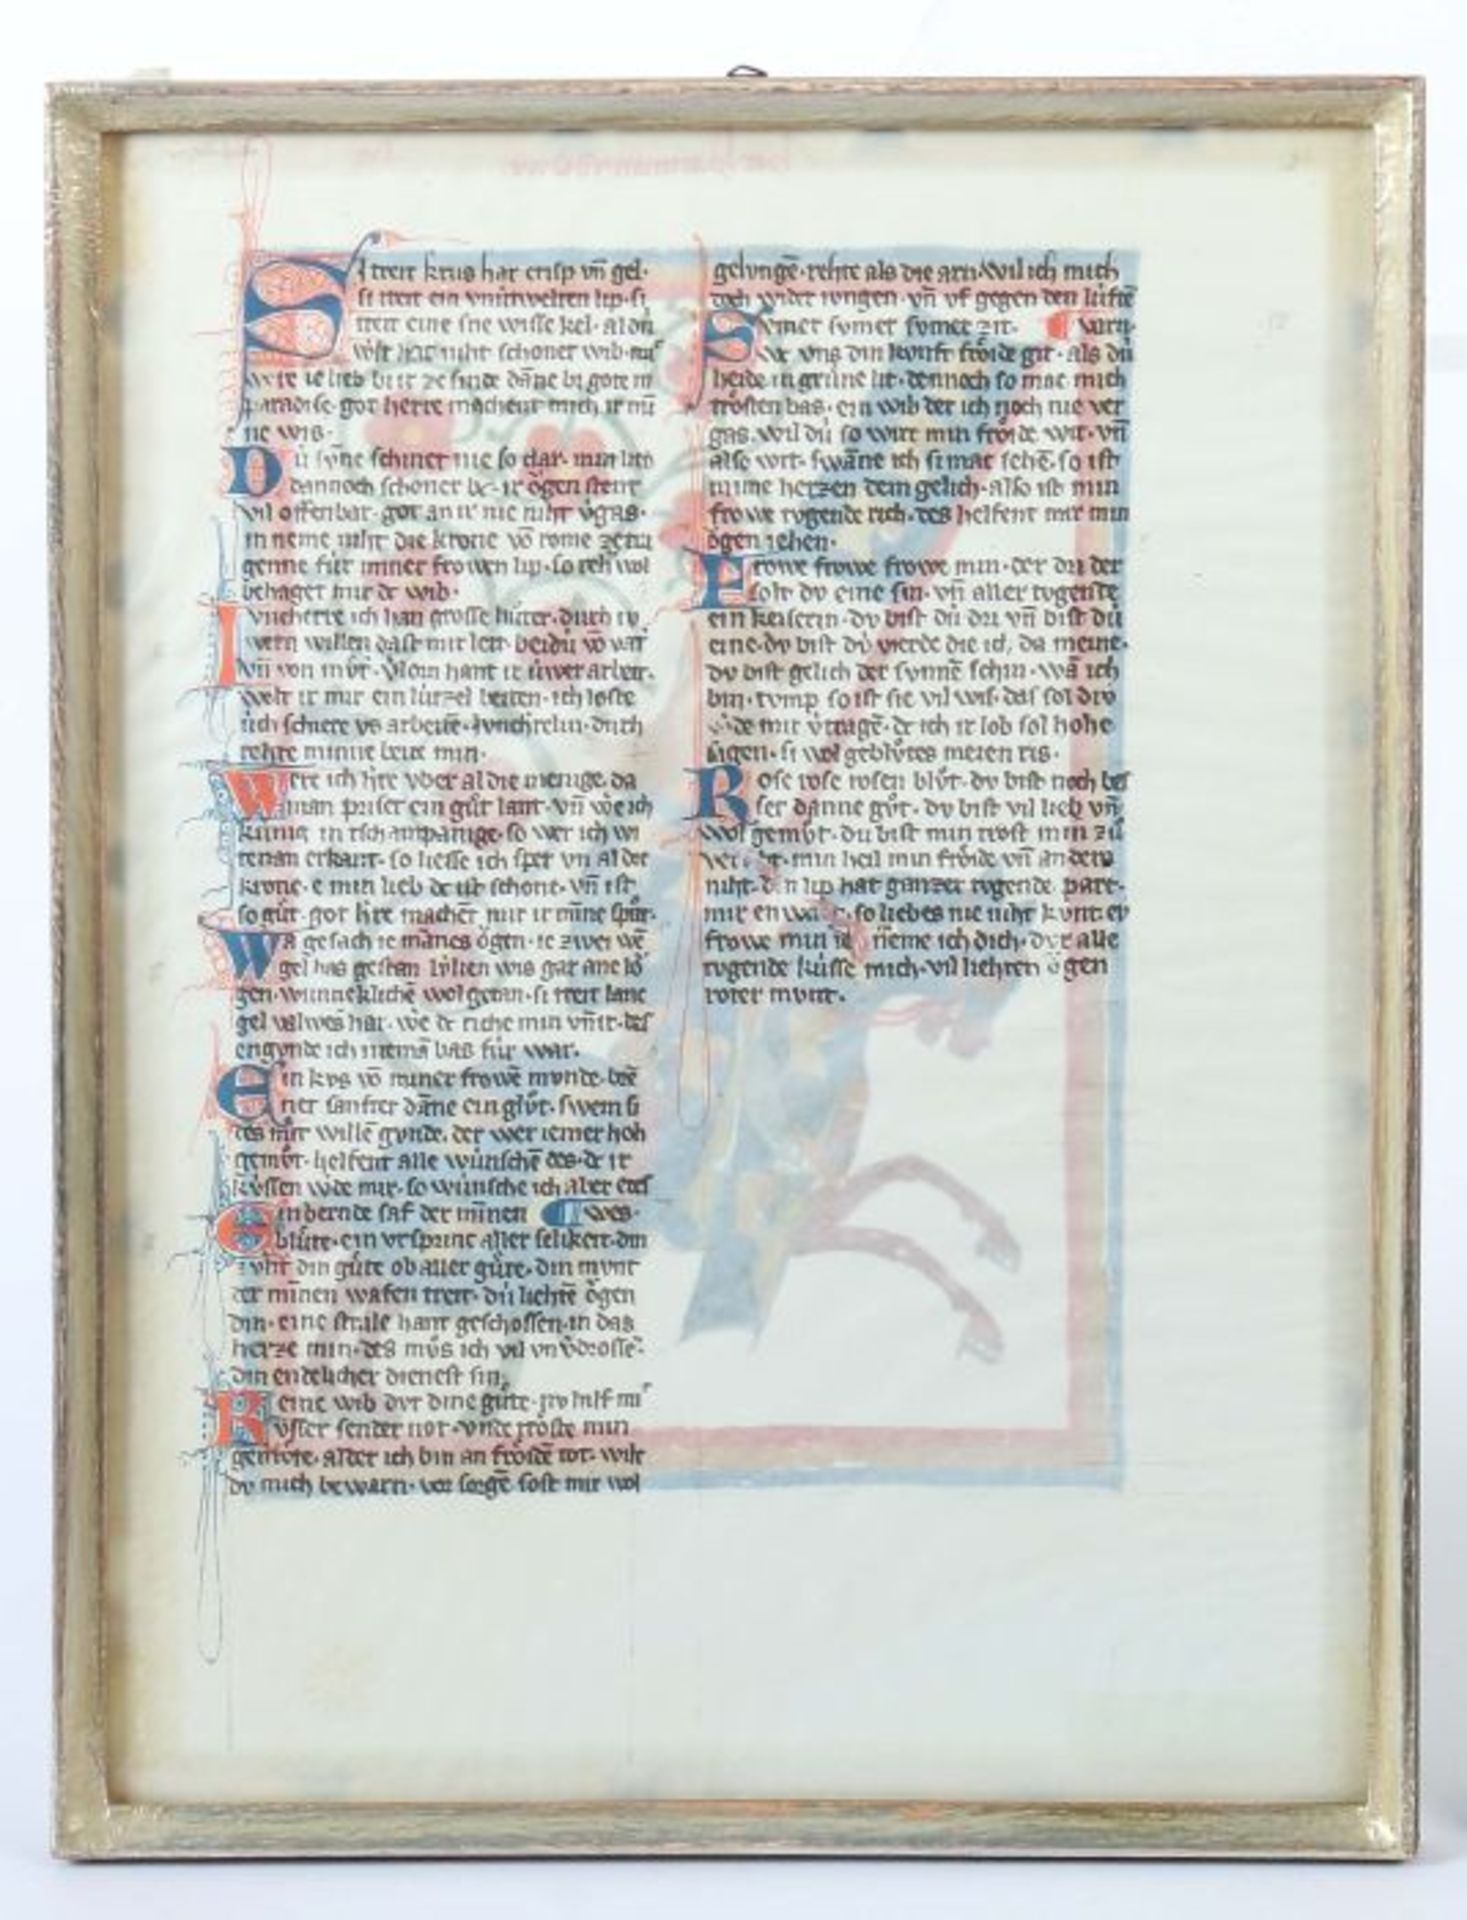 Si treit krus har crisp vn̄ gel·
si treit ein
treit eine sne wisse kel· al dvr
niht schoner wib·
ie lieb bi ir ze sinde dāne bi gote in
paradise· got herre machent mich ir mī
ne wis·
Dú svñe schinet nie so clar· min lieb
dannoch schoner ir ögen stent
vil offenbar· got an ir nie niht v̓gas·
in neme niht die krone vō rome ze
genne fúr miner frowen lip· so reht wol
behaget mir dc wib·
Ivncherre ich han grosse hv̊te· dvrch iv
wern willen dast mir leit· beidú vō
vn̄ von mv̊t· hant ir úwer arbeit·
welt ir mir ein lúzel beiten· ich lose
úch schiere vs arbeite· ivnchrelin· dvrch
rehte minne min·
Were ich h're vber al die menige· da
man priset ein gůt lant· vn̄ we̓ ich
kúnig in tschampanige· so wer ich wi
tenan erkant· so liesse ich sper vn̄ al die
krone· e min lieb dc ist schone· vn̄ ist
so gůt· got h're machēt mir ir mīne
Wa gesach ie mānes ögen· ie zwei wē
gel bas gestan lvlten wis gar ane lö
gen· wunneklichē wol getan· si treit lanc
gel valwes har· we̓ dc riche min vn̄ ir· des
engvnde ich niemā bas fúr war·
Ein kvs vō miner frowē mvnde·
ner sanfter dāne ein glv̊t· swem si
des mir willē gvnde· der wer iemer hoh
gemv̊t· helfent alle wúnschē des· dc ir
kv́ssen w̓de mir· so wúnsche ich aber
Ein bernde saf der mīnen ¶ wes·
blůte· ein vrsprinc aller selikeit· din
din gůte ob aller gůte· din mvnt
der mīnen wafen treit· dú liehtē ögen
din· eine strale hant geschossen· in das
herze min· des můs ich vil vnv̓drossē·
din endelicher dienest sin·
Reine wib dvr dine gůte· nv hilf mi̓
vsser sender not· vnde tröste min
gemv̊te· alder ich bin an fröidē tot· wilt
dv mich bewarn· vor sorgē sost mir wol
gelvngē· rehte als die arn· wil ich mich
doch wider ivngen· vn̄ vf gegen den lúftē
Svmer svmer svmer zit· ¶ varn·
Swe vns din kvnft fröide git· als dú
heide in grúne lit· dennoch so mac mich
trösten bas· ein wib der ich noch nie ver
gas· wil dú so wirt min fröide wit· vn̄
also wit· swāne ich si mac sehē· so ist
mime herzen dem gelich· also ist min
frowe tvgende rich· des helfent mir min
ögen iehen·
Frowe frowe frowe min· der dv der
solt dv eine sin· vn̄ aller tvgende
ein keiserin· dv bist dú dv vn̄ bist dú
eine· dv bist dú vierde die ich da meine·
dv bist gelich der svnnē schin· wā ich
bin· tvmp so ist sie vil wis· das sol dv
w̓de mir v̓tragē· dc ich ir lob sol hohe
si wol geblůtes meien ris·
Rose rose rosen blůt· dv bist noch bes
ser danne gůt· dv bist vil lieb vn̄
wol gemv̊t· dv bist min trost min zů
min heil min fröide vn̄ anders
niht· din lip hat ganzer tvgende
mir so liebes nie niht kvnt·
frowe min neme ich dich· dvr alle
tvgende kússe mich· vil liehten ögen
roter mvnt·